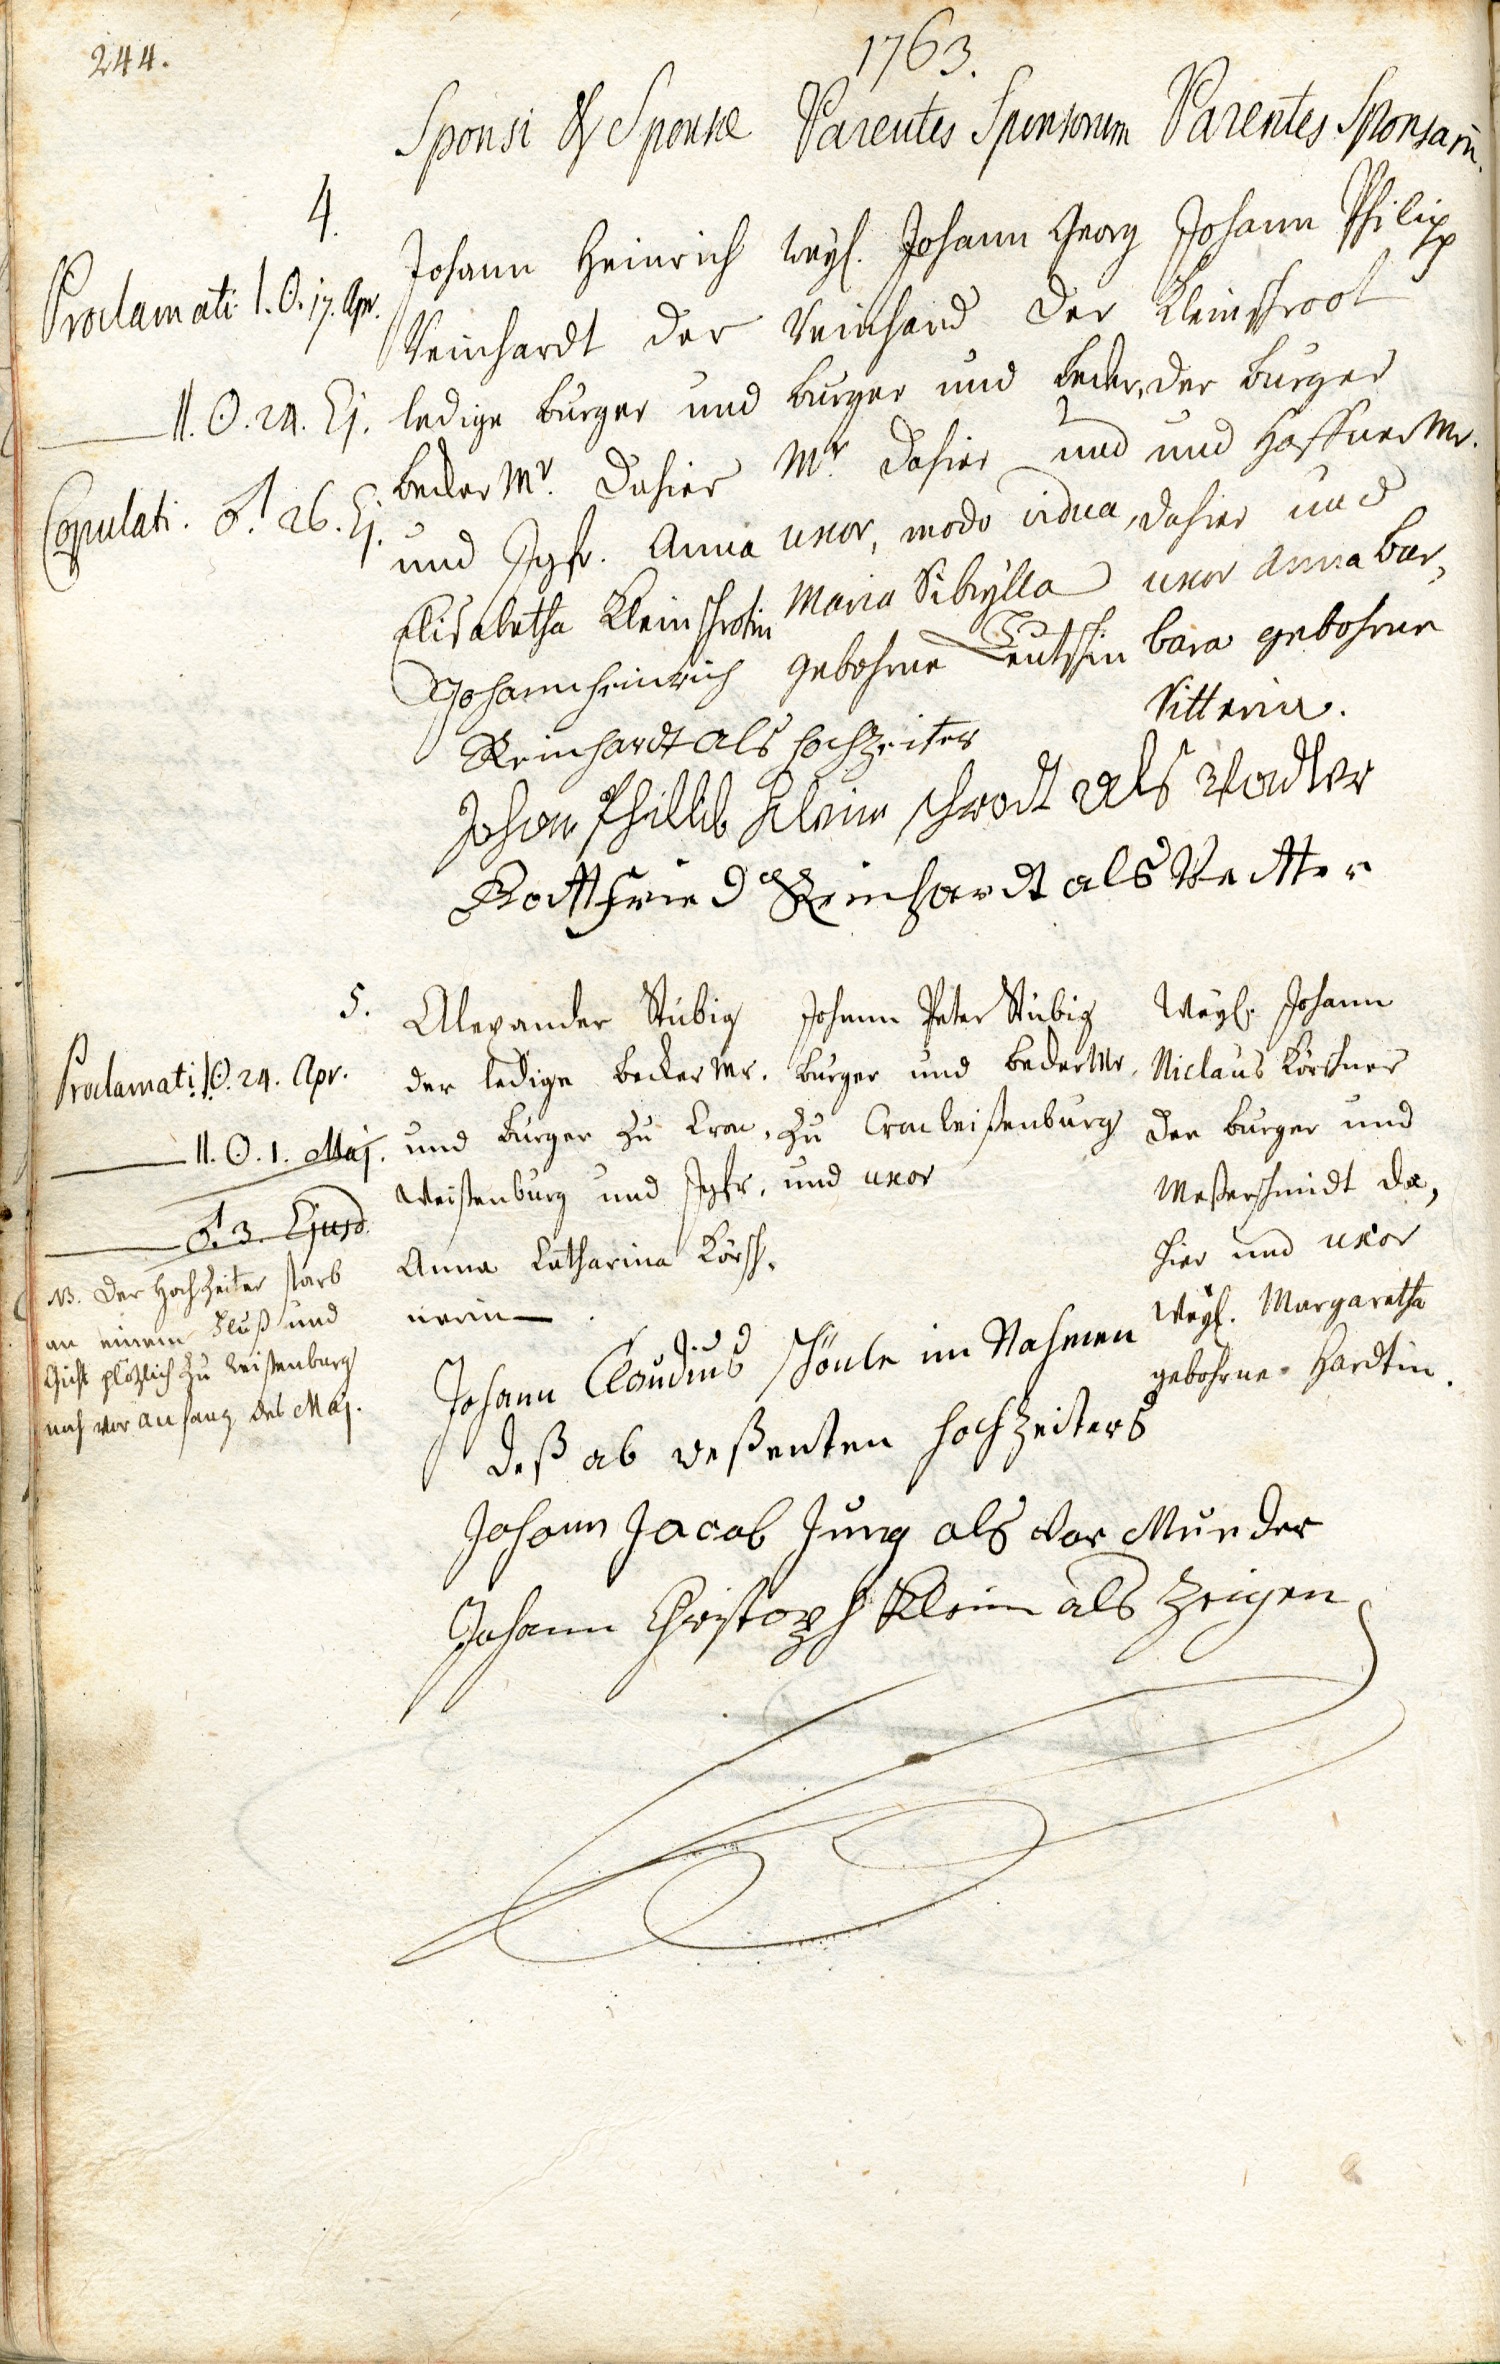 244.
1763.
Sponsi & Sponsae
Parentes Sponsorum
Parentes Sponsarũ.
4.
Proclamati I. ☉. 17. Apr.
II. ☉. 24. Ej.
Copulati. ♂. 26. Ej.
Johann Heinrich
Reinhardt der
ledige burger und
becker Mr. dahier
und Jgfr. Anna
Elisabetha Kleinschrotin
weyl. Johann Georg
Reinhard der
burger und becker,
Mr. dahier und
uxor, modo vidua,
Maria Sibylla
gebohrne Leutschin
Johann Philipp
Kleinschroot
der burger
und Haffner Mr.
dahier und
uxor Anna Bar,
bara gebohrne
Ritterin.
Johann heinrich
Reinhardt als hochzeiter
Johan Phillib Klein schrodt als Vadter
Gottfried Reinhardt als Vetter
5.
Proclamati I. ☉. 24. Apr.
II. ☉. 1. Maj.
♂. 3. Ejusd.
NB. der Hochzeiter starb
an einem Fluß und
Gicht plözlich zu Weißenburg
noch vor anfang des Maj.
Alexander Stübig
der ledige becker Mr.
und burger zu Cron,
Weißenburg und Jgfr.
Anna Catharina Körsch,
nerin
Johann Peter Stübig
burger und becker Mr.
zu Cronweißenburg
und uxor
Weyl. Johann
Niclaus Körschner
der burger und
Messerschmidt da,
hier und uxor
Weyl. Margaretha
gebohrne Hardtin.
Johann Claudius Schönle im Nahmen
deß ab weßenten hochzeiters
Johann Jacob Jung als vor Munder
Johann Christoph Klein als Zeigen